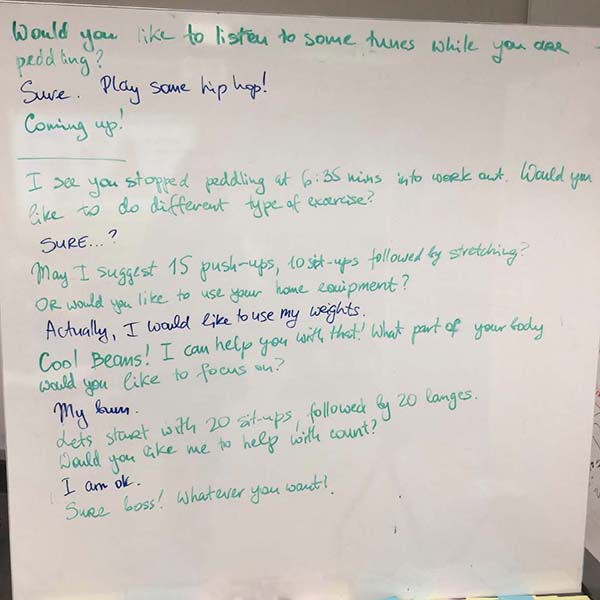 Would you like to listen to some tunes while you are
peddling?
Sure. Play some hip hop!
Coming up!
I see you stopped peddling at 6:35 mins into work out. Would you
like to do different type of exercise?
SURE...?
May I suggest 15 push-ups, 10 sit-ups followed by stretching?
OR would you like to use your home equipment?
Actually, I would like to use my weights.
Cool Beans! I can help you with that! What part of your body
would you like to focus on?
My bum.
Lets start with 20 sit-ups, followed by 20 langes.
Would you like me to help with count?
I am ok.
Sure boss! Whatever you want!